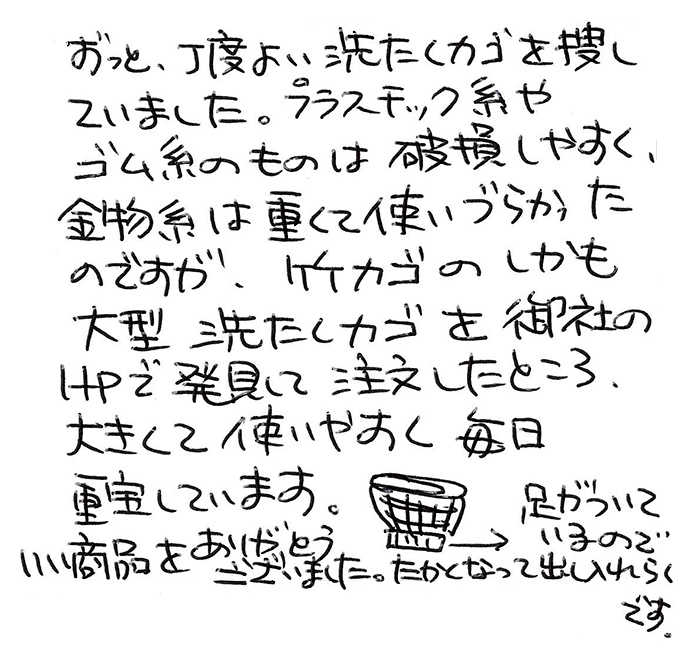 ずっと、丁度よい洗たくカゴを捜し
ていました。プラスチック系や
ゴム系のものは破損しやすく、
金物系は重くて使いづらかった
のですが、竹カゴのしかも
大型洗たくカゴを御社の
HPで発見して注文したところ、
大きくて使いやすく毎日
重宝しています。
いい商品をありがとう
ございました。
足がついて
いるので
たかくなって出し入れらく
です。